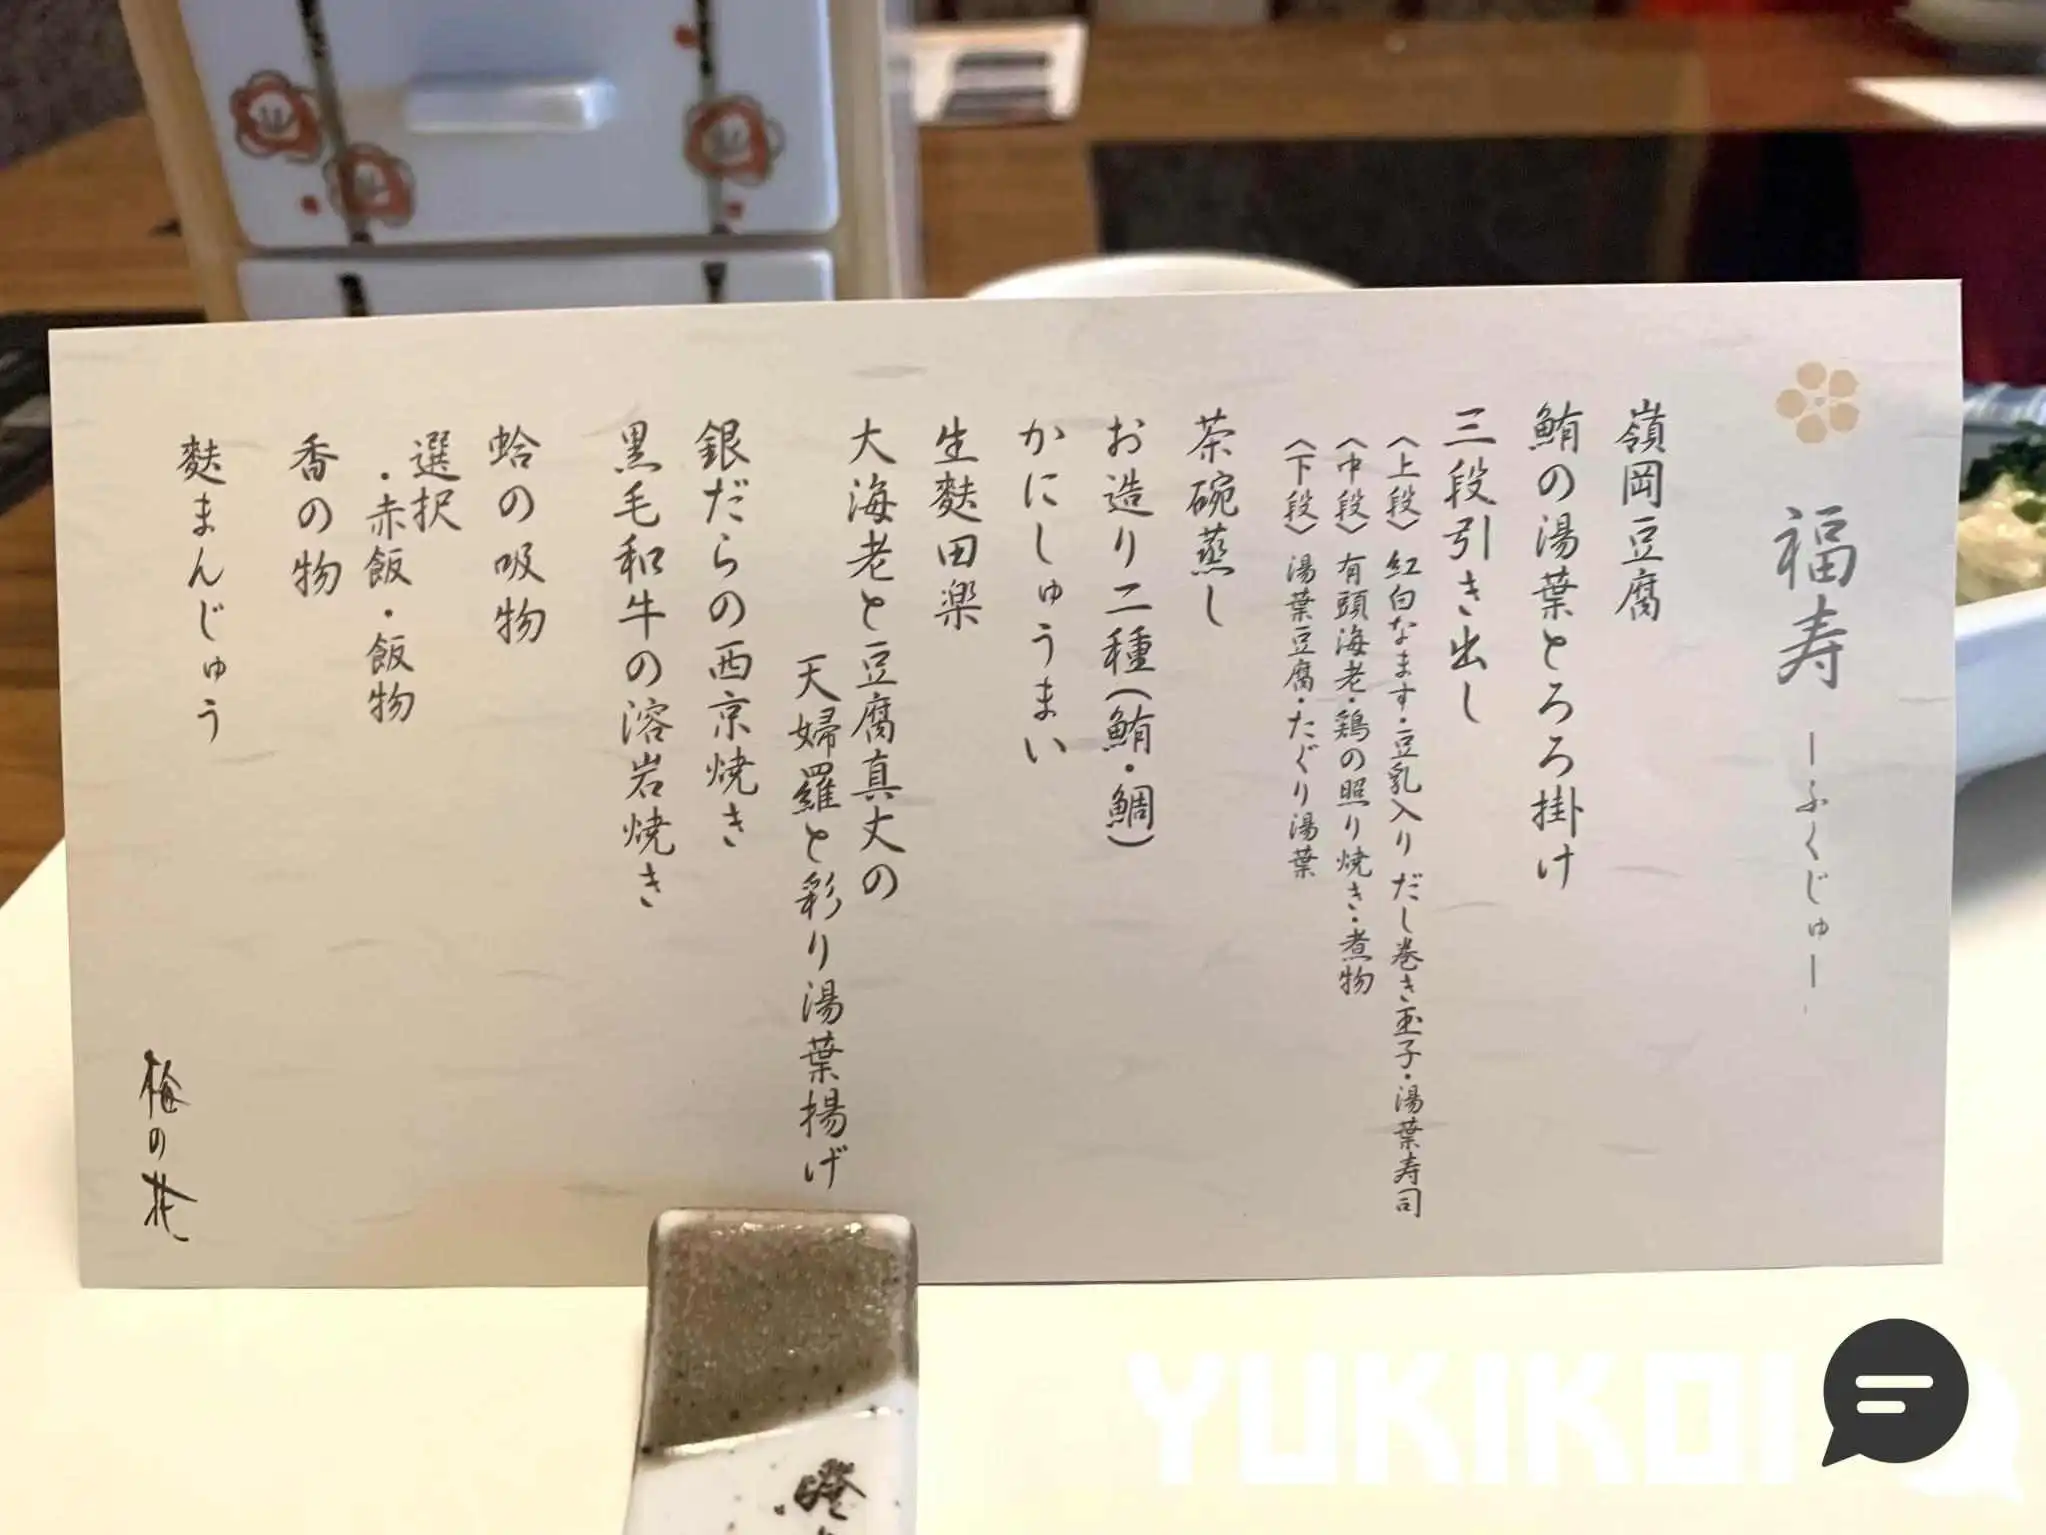 福寿 ーふくじゅー
嶺岡豆腐
鮪の湯葉とろろ掛け
三段引き出し
〈上段〉紅白なます・豆乳入りだし巻き玉子・湯葉寿司
〈中段〉有頭海老・鶏の照り焼き・煮物
〈下段〉湯葉豆腐・たぐり湯葉
茶碗蒸し
お造り二種(鮪・鯛)
かにしゅうまい
生麩田楽
大海老と豆腐真丈の
天婦羅と彩り湯葉揚げ
銀だらの西京焼き
黒毛和牛の溶岩焼き
蛤の吸物
選択
・赤飯・飯物
香の物
麩まんじゅう
梅の花
YUKIKOI